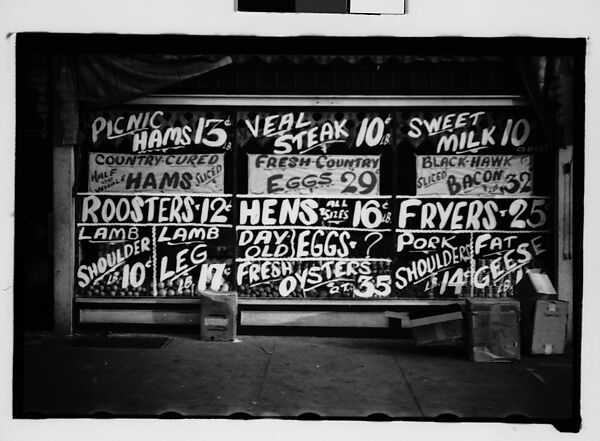 PICNIC HAMS 13¢ LB.
COUNTRY-CURED
HALF OR WHOLE HAMS SLICED
ROOSTERS 12¢ LB.
LAMB SHOULDER LB. 10¢
LAMB LEG LB. 17¢
VEAL STEAK 10¢ LB.
FRESH-COUNTRY
EGGS 29¢
HENS ALL SIZES 16¢ LB.
DAY OLD EGGS ?
FRESH OYSTERS QT. 35¢
SWEET MILK 10¢
BLACK-HAWK
SLICED BACON LB. 32¢
FRYERS 25¢
PORK SHOULDERS LB. 14¢
FAT GEESE LB.